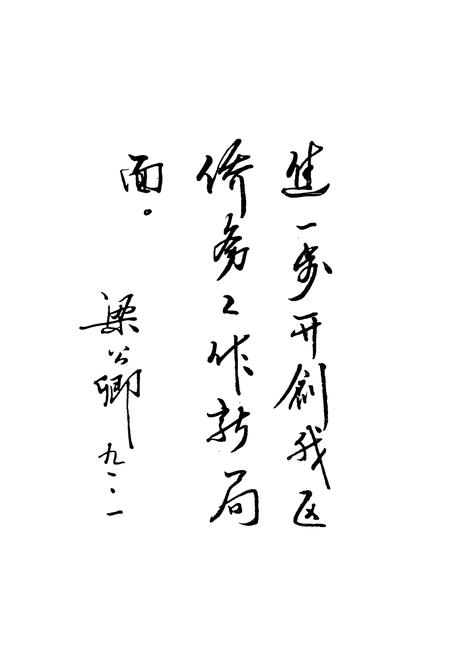 進一步开創我区
侨务工作新局
面。
梁公卿
九、三、一